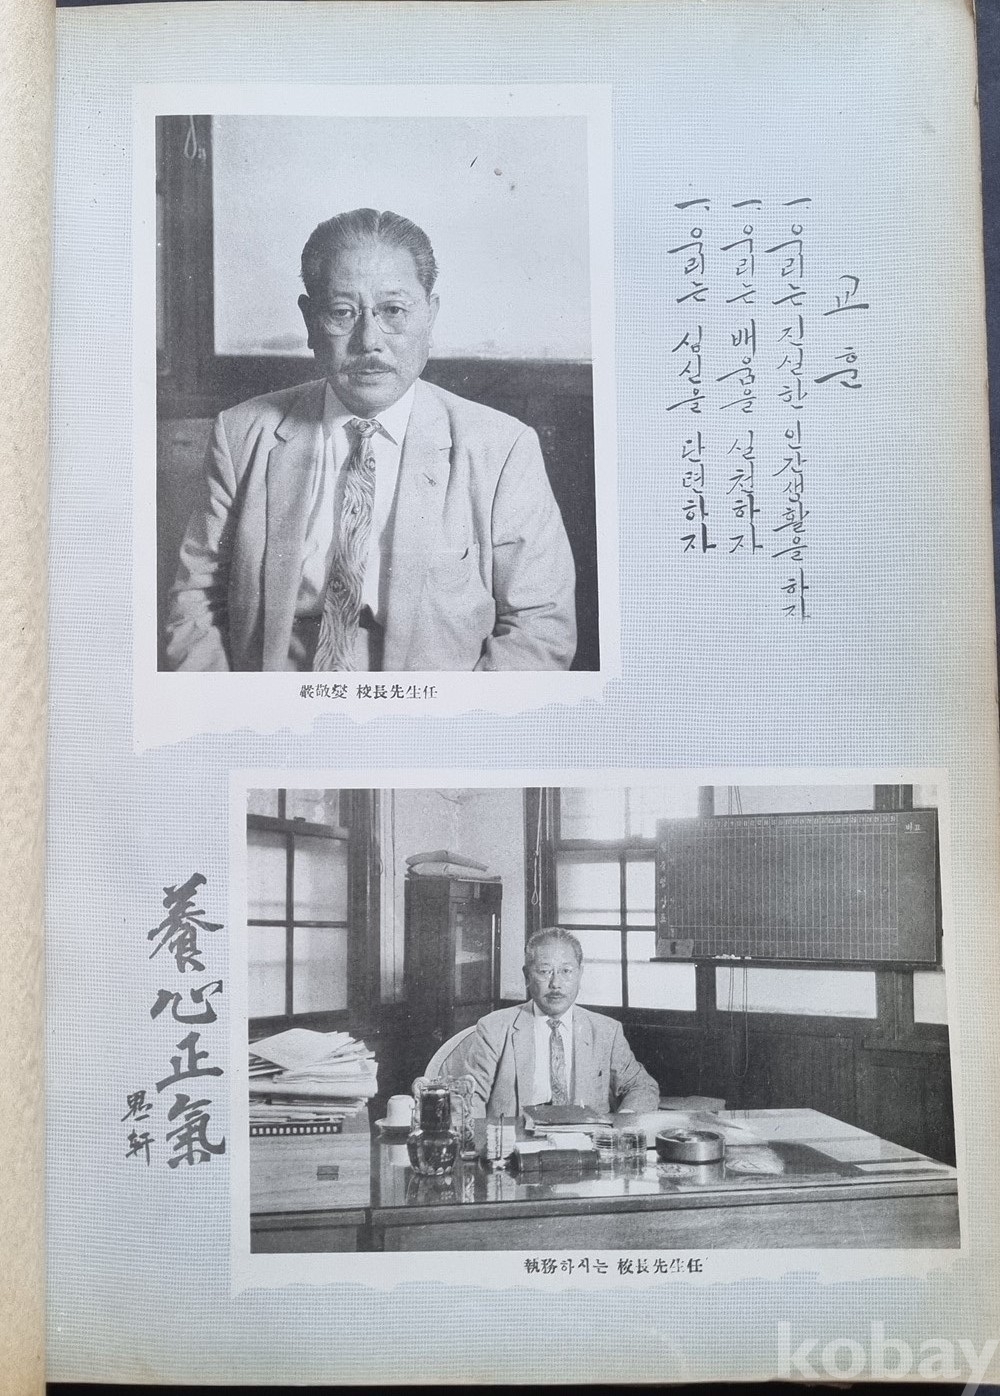 교훈
一. 우리는 진실한 인간생활을 하자
一. 우리는 배움을 실천하자
一. 우리는 심신을 단련하자
嚴敬燮 校長先生任
비고
養心正氣
軒
執務하시는 校長先生任
kobay